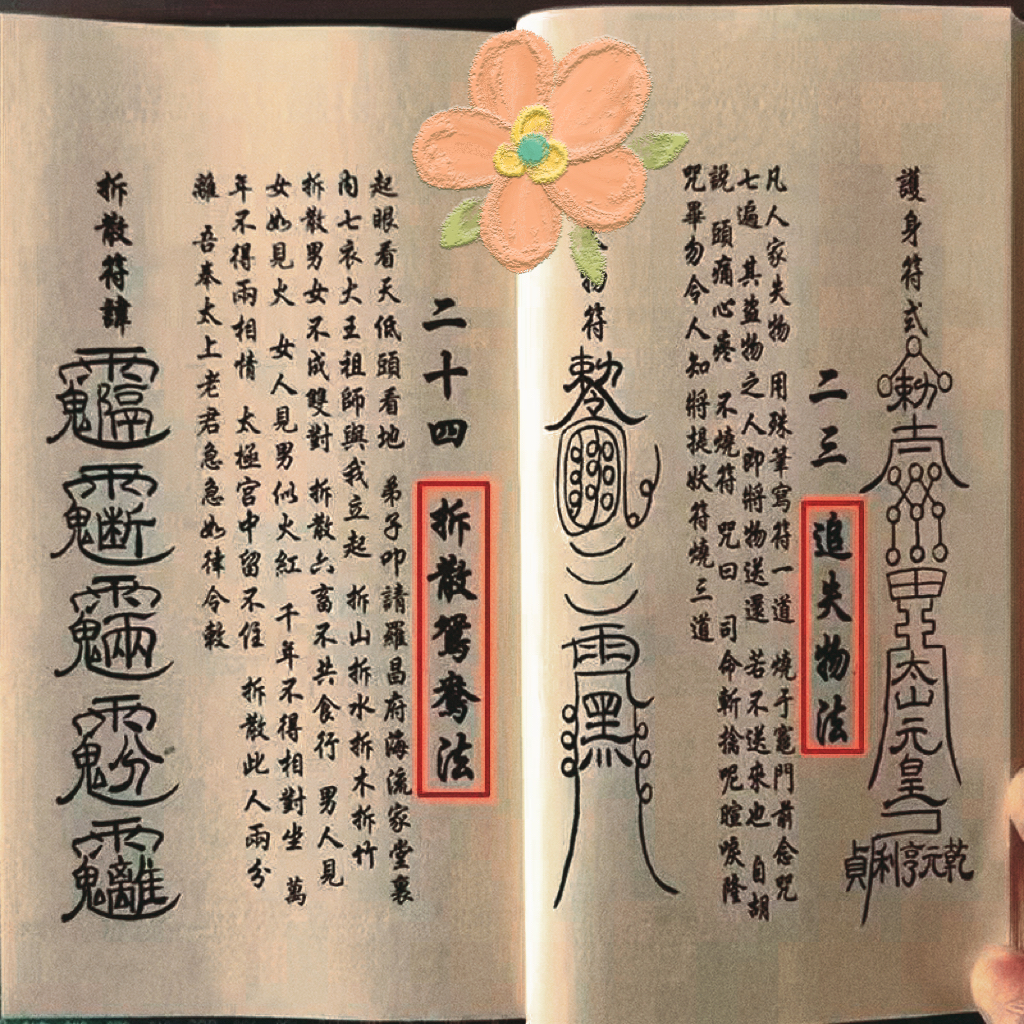 護身符式
勅
太山元皇
乾元亨利貞
二三 追失物法
凡人家失物 用殊筆寫符一道 燒于竈門前念咒
七遍 其盜物之人即將物送還 若不送來也 自胡
說 頭痛心疼 不燒符 咒曰 司命斬擒呢暄唳隆
咒畢勿令人知將提妖符燒三道
物符
勅令
雨黑
二十四 拆散鴛鴦法
起眼看天低頭看地 弟子叩請羅昌府海流家堂裏
內七衣大王祖師與我立起 拆山拆水拆木拆竹
拆散男女不成雙對 拆散六畜不共食行 男人見
女如見火 女人見男似火紅 千年不得相對坐 萬
年不得兩相情 太極宮中留不住 拆散此人兩分
離 吾奉太上老君急急如律令敕
拆散符諱